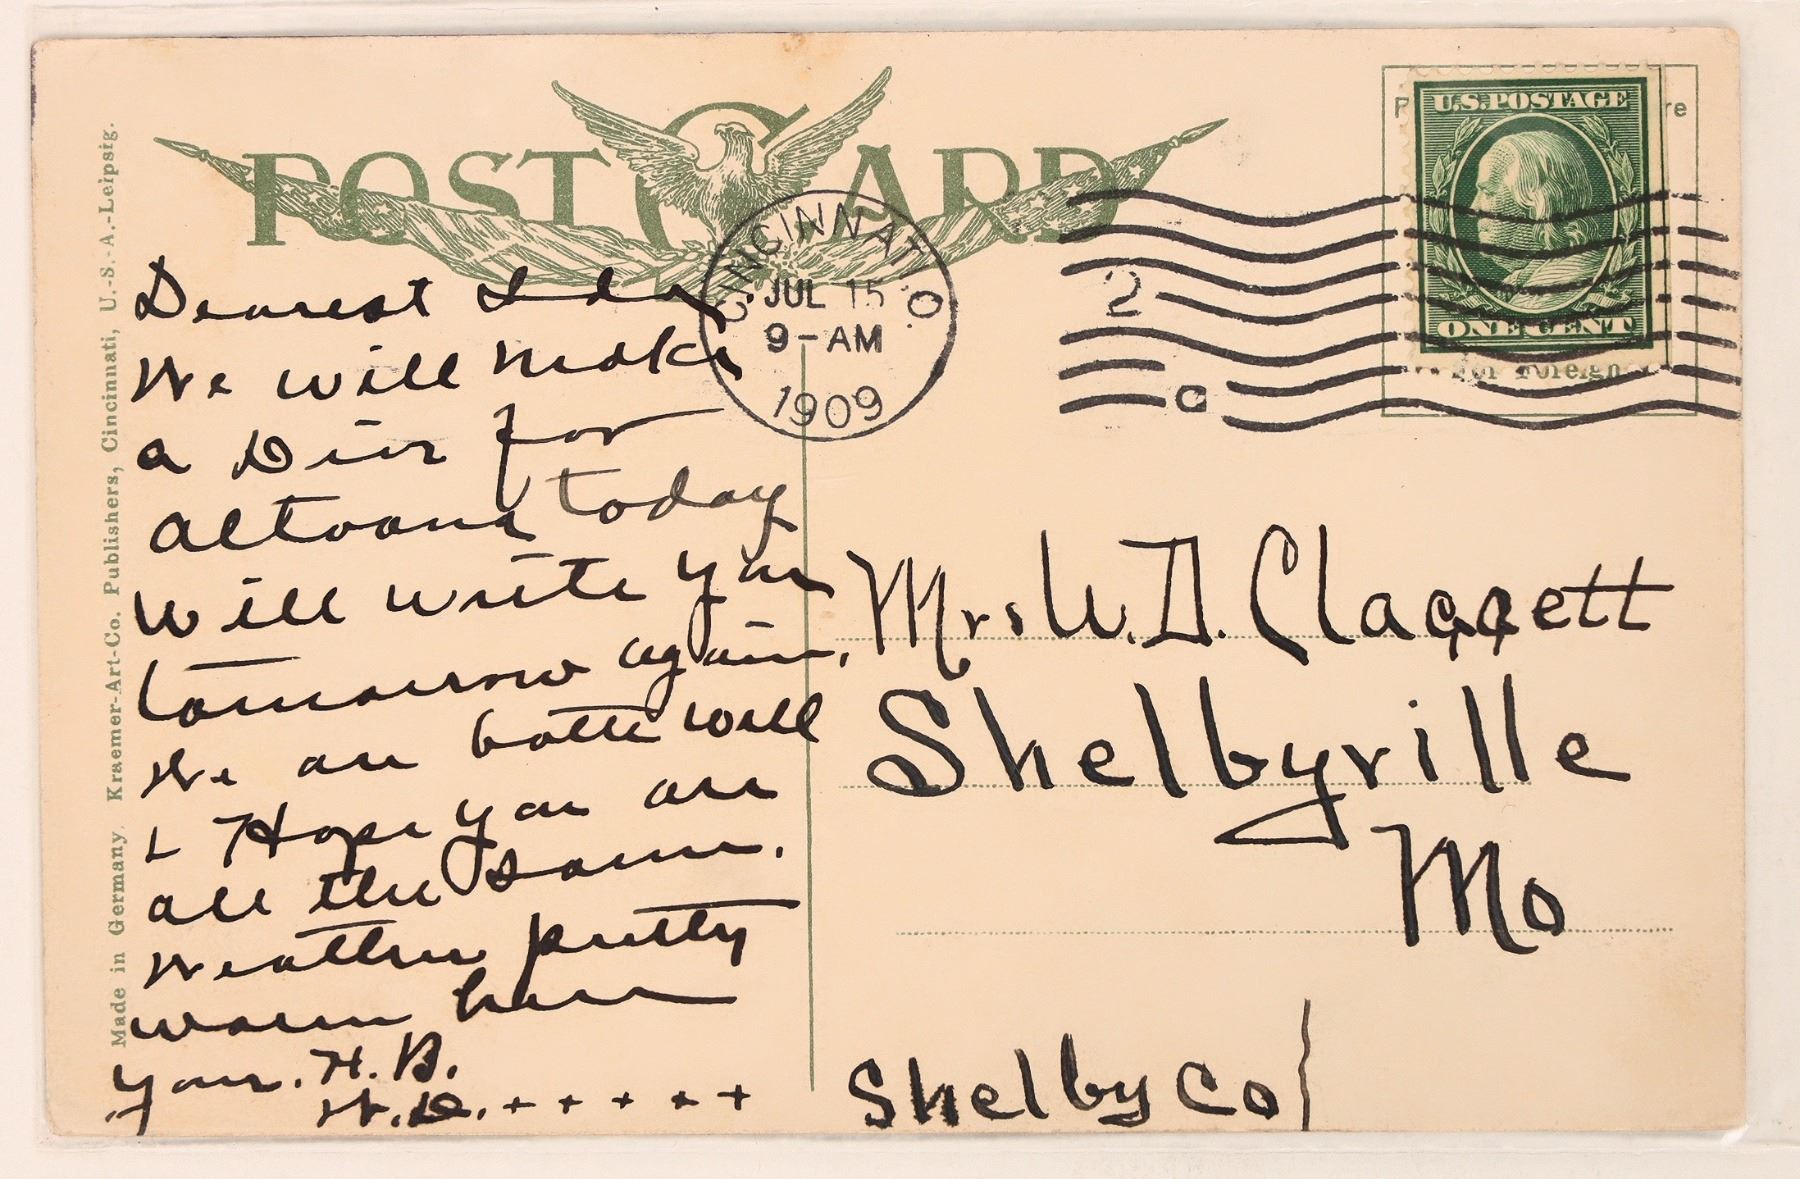 POST CARD
Made in Germany. Kraemer-Art-Co. Publishers, Cincinnati, U.-S.-A.-Leipsig.
CINCINNATI, O.
JUL 15
9-AM
1909
2
C
U.S. POSTAGE
ONE CENT
For Foreign
Dearest Ida,
We will make
a Dive for
Altoona today
Will write you
tomorrow again.
We are both well
& Hope you are
all the same.
Weather pretty
warm here
Your. H. B.
W. D. + + + + +
Mrs W. D. Claggett
Shelbyville
Mo
Shelby Co